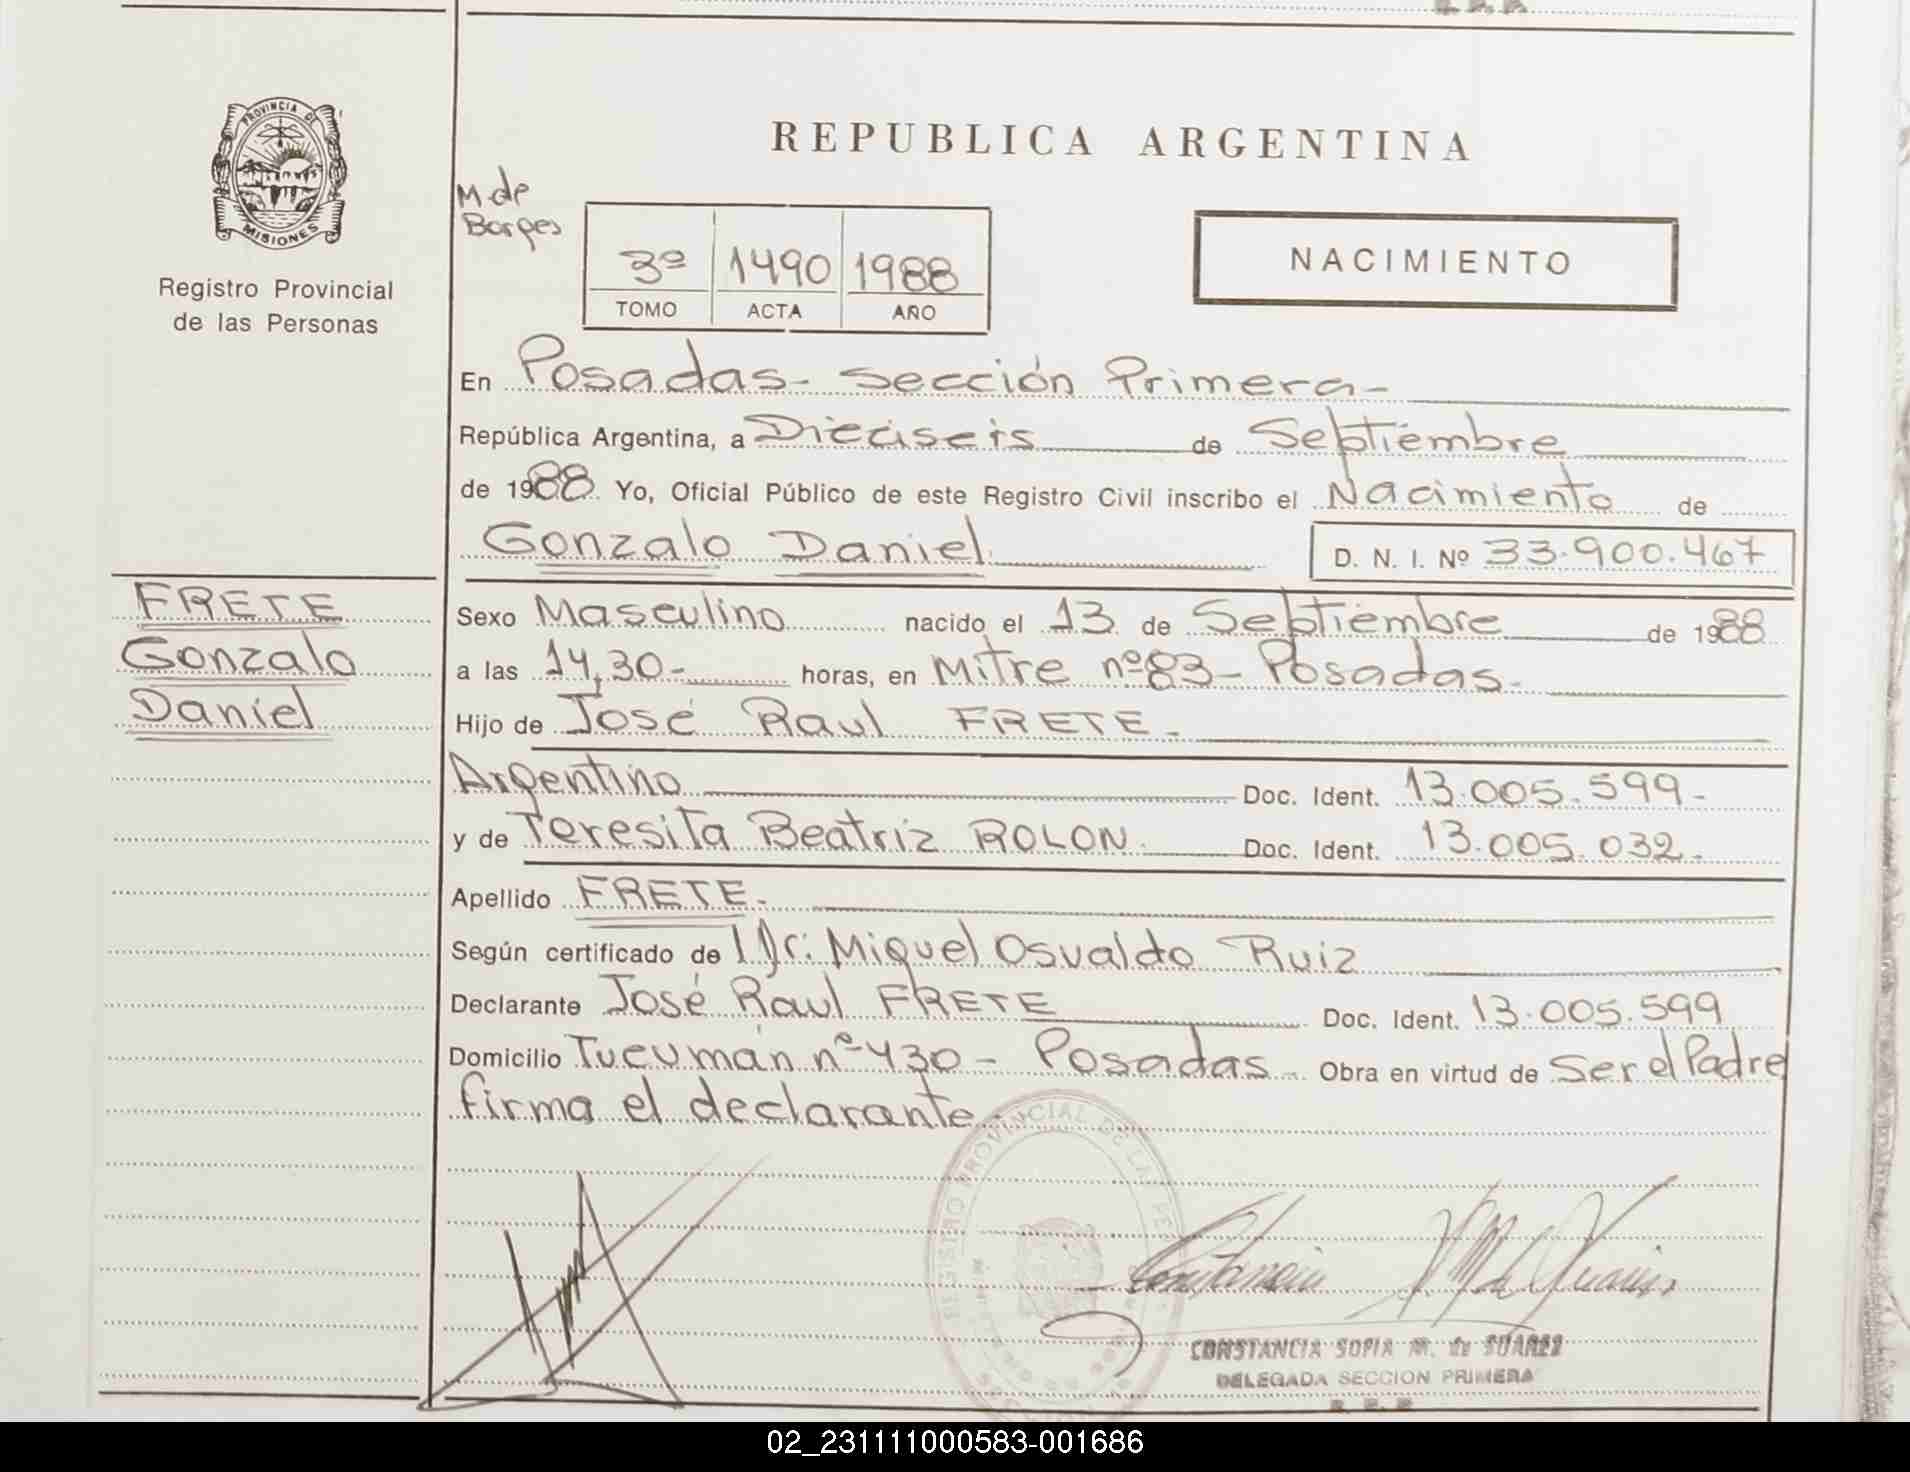 PROVINCIA DE
MISIONES
Registro Provincial
de las Personas
REPUBLICA ARGENTINA
M. de
Borges
3º 1490 1988
TOMO ACTA AÑO
NACIMIENTO
En Posadas- Sección Primera-
República Argentina, a Dieciseis de Septiembre
de 1988 Yo, Oficial Público de este Registro Civil inscribo el Nacimiento de
Gonzalo Daniel D. N. I. Nº 33.900.467
FRETE
Gonzalo
Daniel
Sexo Masculino nacido el 13 de Septiembre de 1988
a las 14,30- horas, en Mitre nº83- Posadas-
Hijo de José Raul FRETE-
Argentino Doc. Ident. 13.005.599-
y de Teresita Beatriz ROLON. Doc. Ident. 13.005.032-
Apellido FRETE-
Según certificado de Dr: Miguel Osvaldo Ruiz
Declarante José Raul FRETE Doc. Ident. 13.005.599
Domicilio Tucumán nº 430- Posadas- Obra en virtud de Ser el Padre
firma el declarante.
REGISTRO PROVINCIAL DE LAS
CONSTANCIA SOFIA M. de SUAREZ
DELEGADA SECCION PRIMERA
02_231111000583-001686